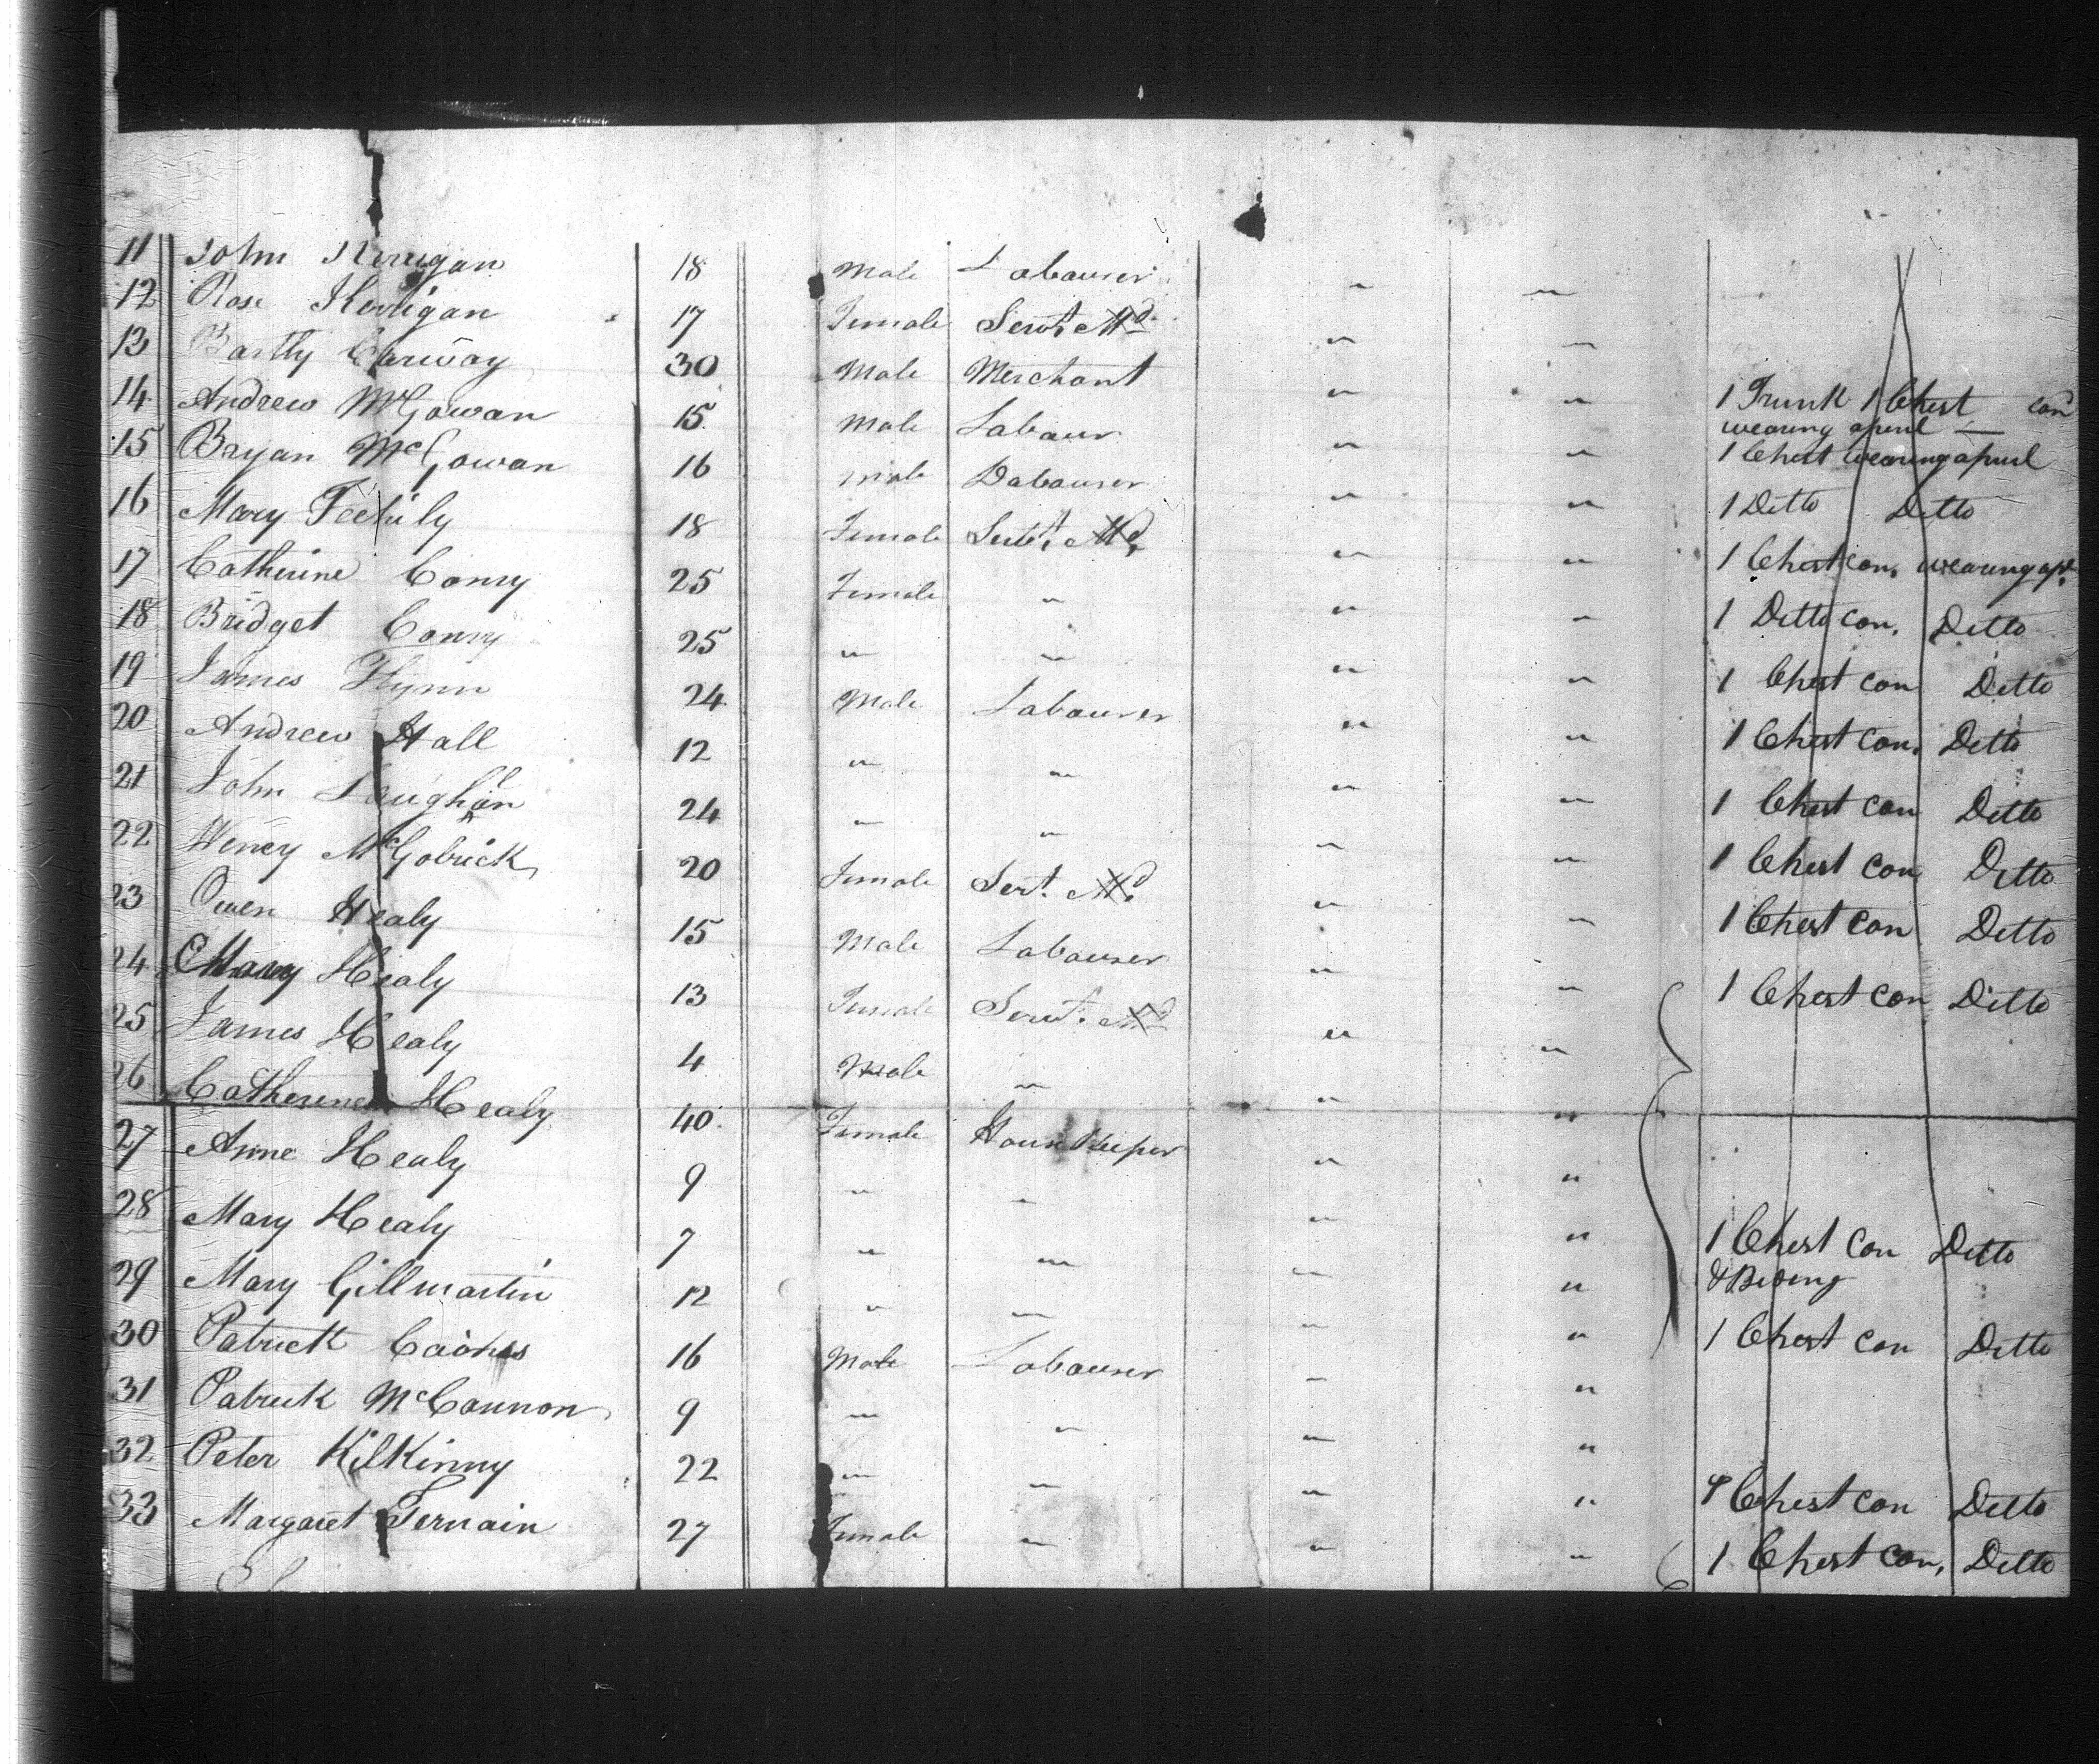 11 John Kerrigan 18 Male Labourer " "
12 Rose Kerrigan 17 Female Servt. Md. " "
13 Bartly Conway 30 Male Merchant " " 1 Trunk 1 Chest con
wearing aparel —
14 Andrew McGowan 15 Male Labour " " 1 Chest wearing aparel
15 Bryan McGowan 16 Male Labourer " " 1 Ditto Ditto
16 Mary Feehily 18 Female Servt. Md. " " 1 Chest con. wearing apl.
17 Catherine Conry 25 Female " " " 1 Ditto con. Ditto
18 Bridget Conry 25 " " " " 1 Chest con Ditto
19 James Flynn 24 Male Labourer " " 1 Chest con. Ditto
20 Andrew Hall 12 " " " " 1 Chest con Ditto
21 John 24 " " " " 1 Chest con Ditto
22 McGobrick 20 Female Sert. Md. " " 1 Chest con Ditto
23 Owen Healy 15 Male Labourer " " 1 Chest con Ditto
24 Mary Healy 13 Female Servt. Md. " "
25 James Healy 4 Male " " "
26 Catherine Healy 40 Female House Keeper " "
27 Anne Healy 9 " " " " 1 Chest Con Ditto
& Beding
28 Mary Healy 7 " " " " 1 Chest con Ditto
29 Mary Gillmartin 12 " " " "
30 Patrick 16 Male Labourer " "
31 Patrick McCannon 9 " " " " Chest con Ditto
32 Peter KilKinny 22 " " " " 1 Chest con. Ditto
33 Margaret Ternain 27 Female " " "